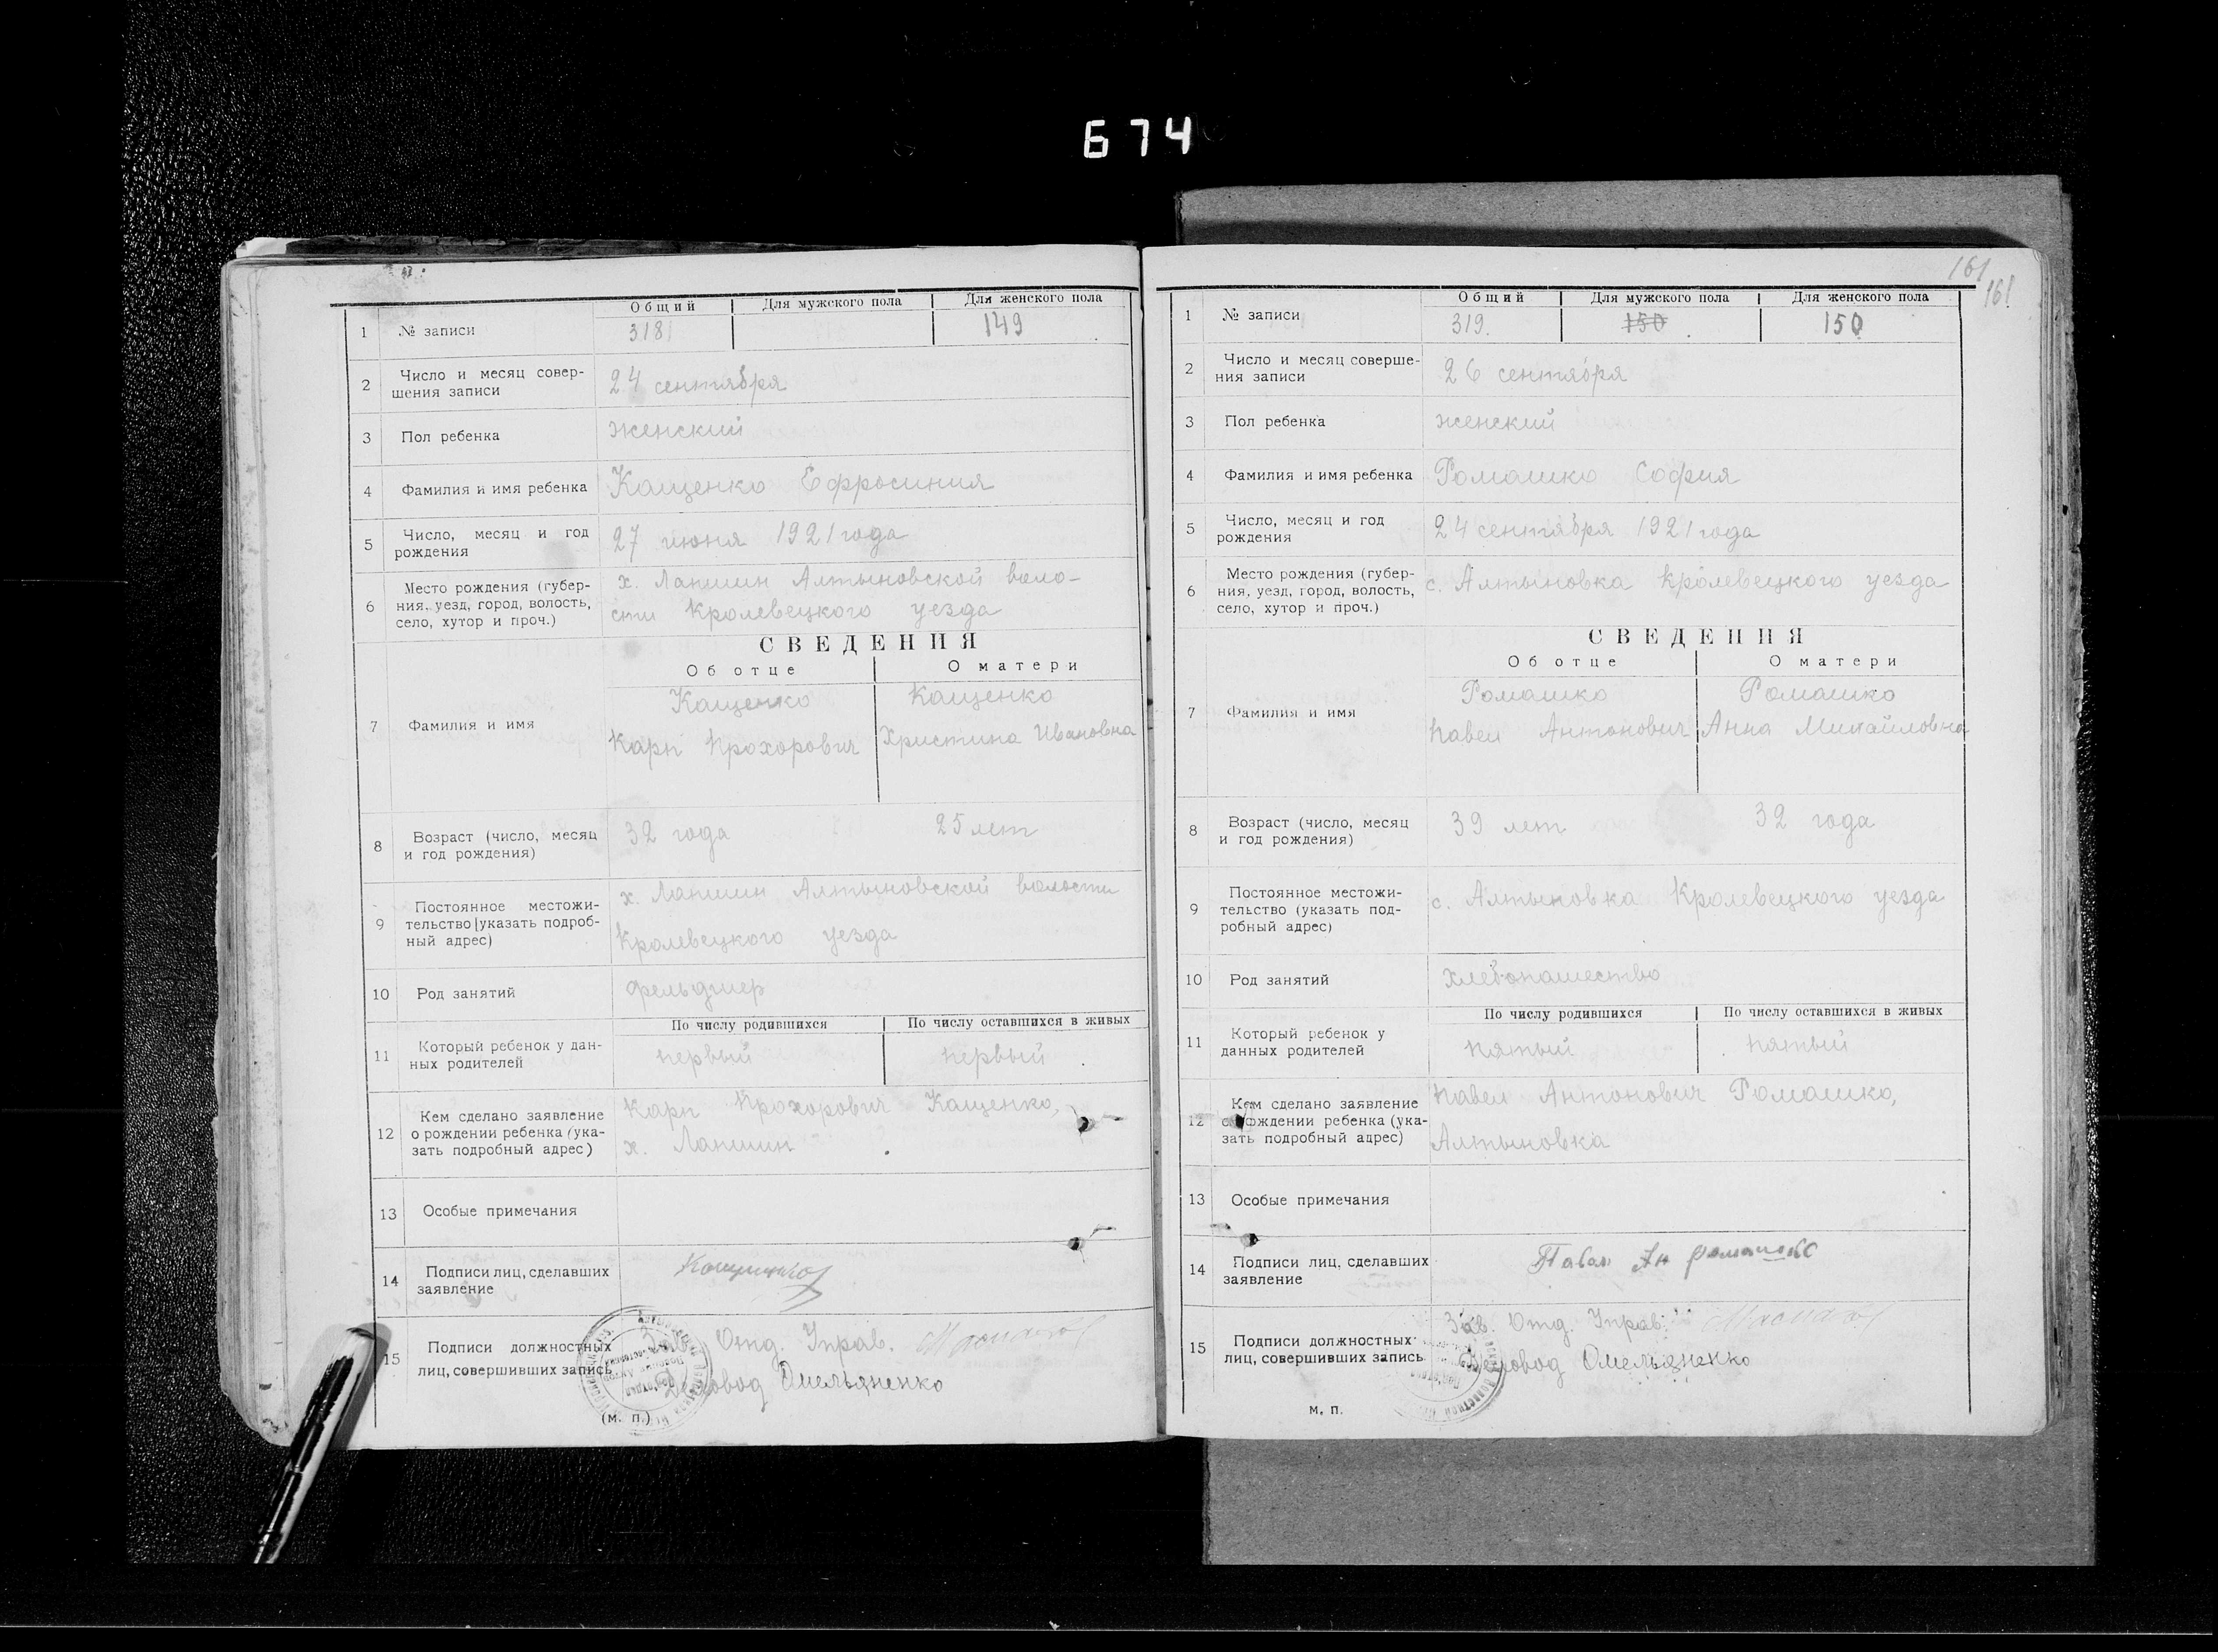 674
Общий Для мужского пола Для женского пола
1 № записи 318 149
2 Число и месяц совер-
шения записи
24 сентября
3 Пол ребенка женский
4 Фамилия и имя ребенка Кащенко Ефросиния
5 Число, месяц и год
рождения
27 июня 1921 года
6 Место рождения (губер-
ния, уезд, город, волость,
село, хутор и проч.)
х. Лапшин Алтыновской воло-
сти Кролевецкого уезда
СВЕДЕНИЯ
Об отце О матери
7 Фамилия и имя
Кащенко Кащенко
Карп Прохорович Христина Ивановна
8 Возраст (число, месяц
и год рождения)
32 года 25 лет
9 Постоянное местожи-
тельство (указать подроб-
ный адрес)
х. Лапшин Алтыновской волости
Кролевецкого уезда
10 Род занятий фельдшер
По числу родившихся По числу оставшихся в живых
11 Который ребенок у дан-
ных родителей
первый первый
12 Кем сделано заявление
о рождении ребенка (ука-
зать подробный адрес)
Карп Прохорович Кащенко,
х. Лапшин
13 Особые примечания
14 Подписи лиц, сделавших
заявление
15 Подписи должностных
лиц, совершивших запись
Зав. Отд. Управ.
Деловод Омельяненко
(м. п.)
161
161
Общий Для мужского пола Для женского пола
1 № записи 319. 150 150
2 Число и месяц соверше-
ния записи
26 сентября
3 Пол ребенка женский
4 Фамилия и имя ребенка Ромашко София
5 Число, месяц и год
рождения
24 сентября 1921 года
6 Место рождения (губер-
ния, уезд, город, волость,
село, хутор и проч.)
с. Алтыновка Кролевецкого уезда
СВЕДЕНИЯ
Об отце О матери
7 Фамилия и имя
Ромашко Ромашко
Павел Антонович Анна Михайловна
8 Возраст (число, месяц
и год рождения)
39 лет 32 года
9 Постоянное местожи-
тельство (указать под-
робный адрес)
с. Алтыновка Кролевецкого уезда
10 Род занятий хлебопашество
По числу родившихся По числу оставшихся в живых
11 Который ребенок у
данных родителей
пятый пятый
12 Кем сделано заявление
о рождении ребенка (ука-
зать подробный адрес)
Павел Антонович Ромашко,
Алтыновка
13 Особые примечания
14 Подписи лиц, сделавших
заявление
Павел Ан Ромашко
15 Подписи должностных
лиц, совершивших запись
Зав. Отд. Управ.
Деловод Омельяненко
м. п.